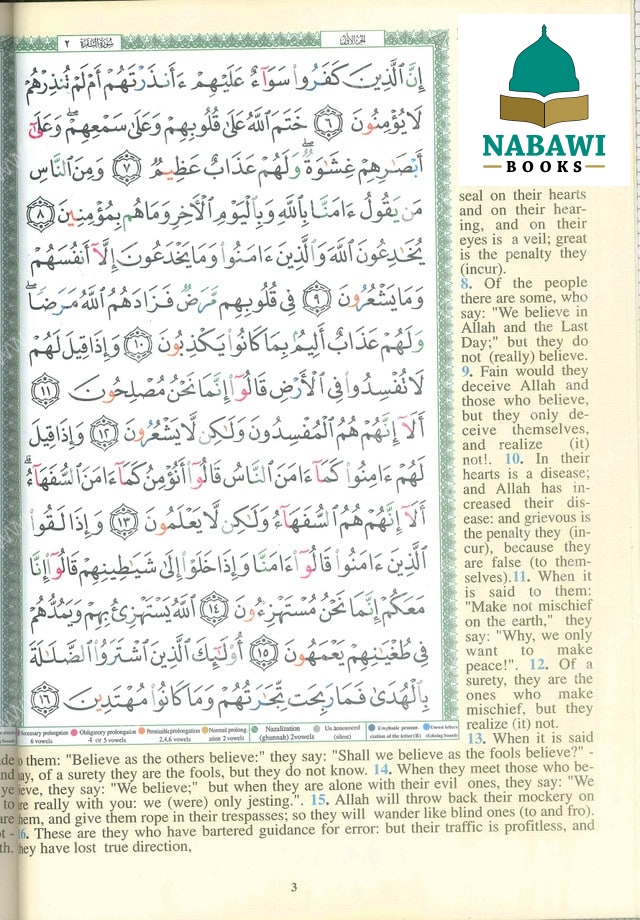 سُورَةُ البَقَرَة ٢
الجزء الأول
إِنَّ ٱلَّذِينَ كَفَرُوا۟ سَوَآءٌ عَلَيْهِمْ ءَأَنذَرْتَهُمْ أَمْ لَمْ تُنذِرْهُمْ
لَا يُؤْمِنُونَ ٦ خَتَمَ ٱللَّهُ عَلَىٰ قُلُوبِهِمْ وَعَلَىٰ سَمْعِهِمْ ۖ وَعَلَىٰٓ
أَبْصَٰرِهِمْ غِشَٰوَةٌ ۖ وَلَهُمْ عَذَابٌ عَظِيمٌ ٧ وَمِنَ ٱلنَّاسِ
مَن يَقُولُ ءَامَنَّا بِٱللَّهِ وَبِٱلْيَوْمِ ٱلْـَٔاخِرِ وَمَا هُم بِمُؤْمِنِينَ ٨
يُخَٰدِعُونَ ٱللَّهَ وَٱلَّذِينَ ءَامَنُوا۟ وَمَا يَخْدَعُونَ إِلَّآ أَنفُسَهُمْ
وَمَا يَشْعُرُونَ ٩ فِى قُلُوبِهِم مَّرَضٌ فَزَادَهُمُ ٱللَّهُ مَرَضًا ۖ
وَلَهُمْ عَذَابٌ أَلِيمٌۢ بِمَا كَانُوا۟ يَكْذِبُونَ ١٠ وَإِذَا قِيلَ لَهُمْ
لَا تُفْسِدُوا۟ فِى ٱلْأَرْضِ قَالُوٓا۟ إِنَّمَا نَحْنُ مُصْلِحُونَ ١١
أَلَآ إِنَّهُمْ هُمُ ٱلْمُفْسِدُونَ وَلَٰكِن لَّا يَشْعُرُونَ ١٢ وَإِذَا قِيلَ
لَهُمْ ءَامِنُوا۟ كَمَآ ءَامَنَ ٱلنَّاسُ قَالُوٓا۟ أَنُؤْمِنُ كَمَآ ءَامَنَ ٱلسُّفَهَآءُ ۗ
أَلَآ إِنَّهُمْ هُمُ ٱلسُّفَهَآءُ وَلَٰكِن لَّا يَعْلَمُونَ ١٣ وَإِذَا لَقُوا۟
ٱلَّذِينَ ءَامَنُوا۟ قَالُوٓا۟ ءَامَنَّا وَإِذَا خَلَوْا۟ إِلَىٰ شَيَٰطِينِهِمْ قَالُوٓا۟ إِنَّا
مَعَكُمْ إِنَّمَا نَحْنُ مُسْتَهْزِءُونَ ١٤ ٱللَّهُ يَسْتَهْزِئُ بِهِمْ وَيَمُدُّهُمْ
فِى طُغْيَٰنِهِمْ يَعْمَهُونَ ١٥ أُو۟لَٰٓئِكَ ٱلَّذِينَ ٱشْتَرَوُا۟ ٱلضَّلَٰلَةَ
بِٱلْهُدَىٰ فَمَا رَبِحَت تِّجَٰرَتُهُمْ وَمَا كَانُوا۟ مُهْتَدِينَ ١٦
NABAWI
BOOKS
seal on their hearts
and on their hear-
ing, and on their
eyes is a veil; great
is the penalty they
(incur).
8. Of the people
there are some, who
say: "We believe in
Allah and the Last
Day;" but they do
not (really) believe.
9. Fain would they
deceive Allah and
those who believe,
but they only de-
ceive themselves,
and realize (it)
not!. 10. In their
hearts is a disease;
and Allah has in-
creased their dis-
ease: and grievous is
the penalty they (in-
cur), because they
are false (to them-
selves).11. When it
is said to them:
"Make not mischief
on the earth," they
say: "Why, we only
want to make
peace!". 12. Of a
surety, they are the
ones who make
mischief, but they
realize (it) not.
13. When it is said
Necessary prolongation 6 vowels
Obligatory prolongation 4 or 5 vowels
Permissible prolongation 2,4,6 vowels
Normal prolongation 2 vowels
Nazalization (ghunnah) 2 vowels
Un announced (silent)
to them: "Believe as the others believe:" they say: "Shall we believe as the fools believe?" -
ay, of a surety they are the fools, but they do not know. 14. When they meet those who be-
eve, they say: "We believe;" but when they are alone with their evil ones, they say: "We
re really with you: we (were) only jesting.". 15. Allah will throw back their mockery on
hem, and give them rope in their trespasses; so they will wander like blind ones (to and fro).
6. These are they who have bartered guidance for error: but their traffic is profitless, and
hey have lost true direction,
3